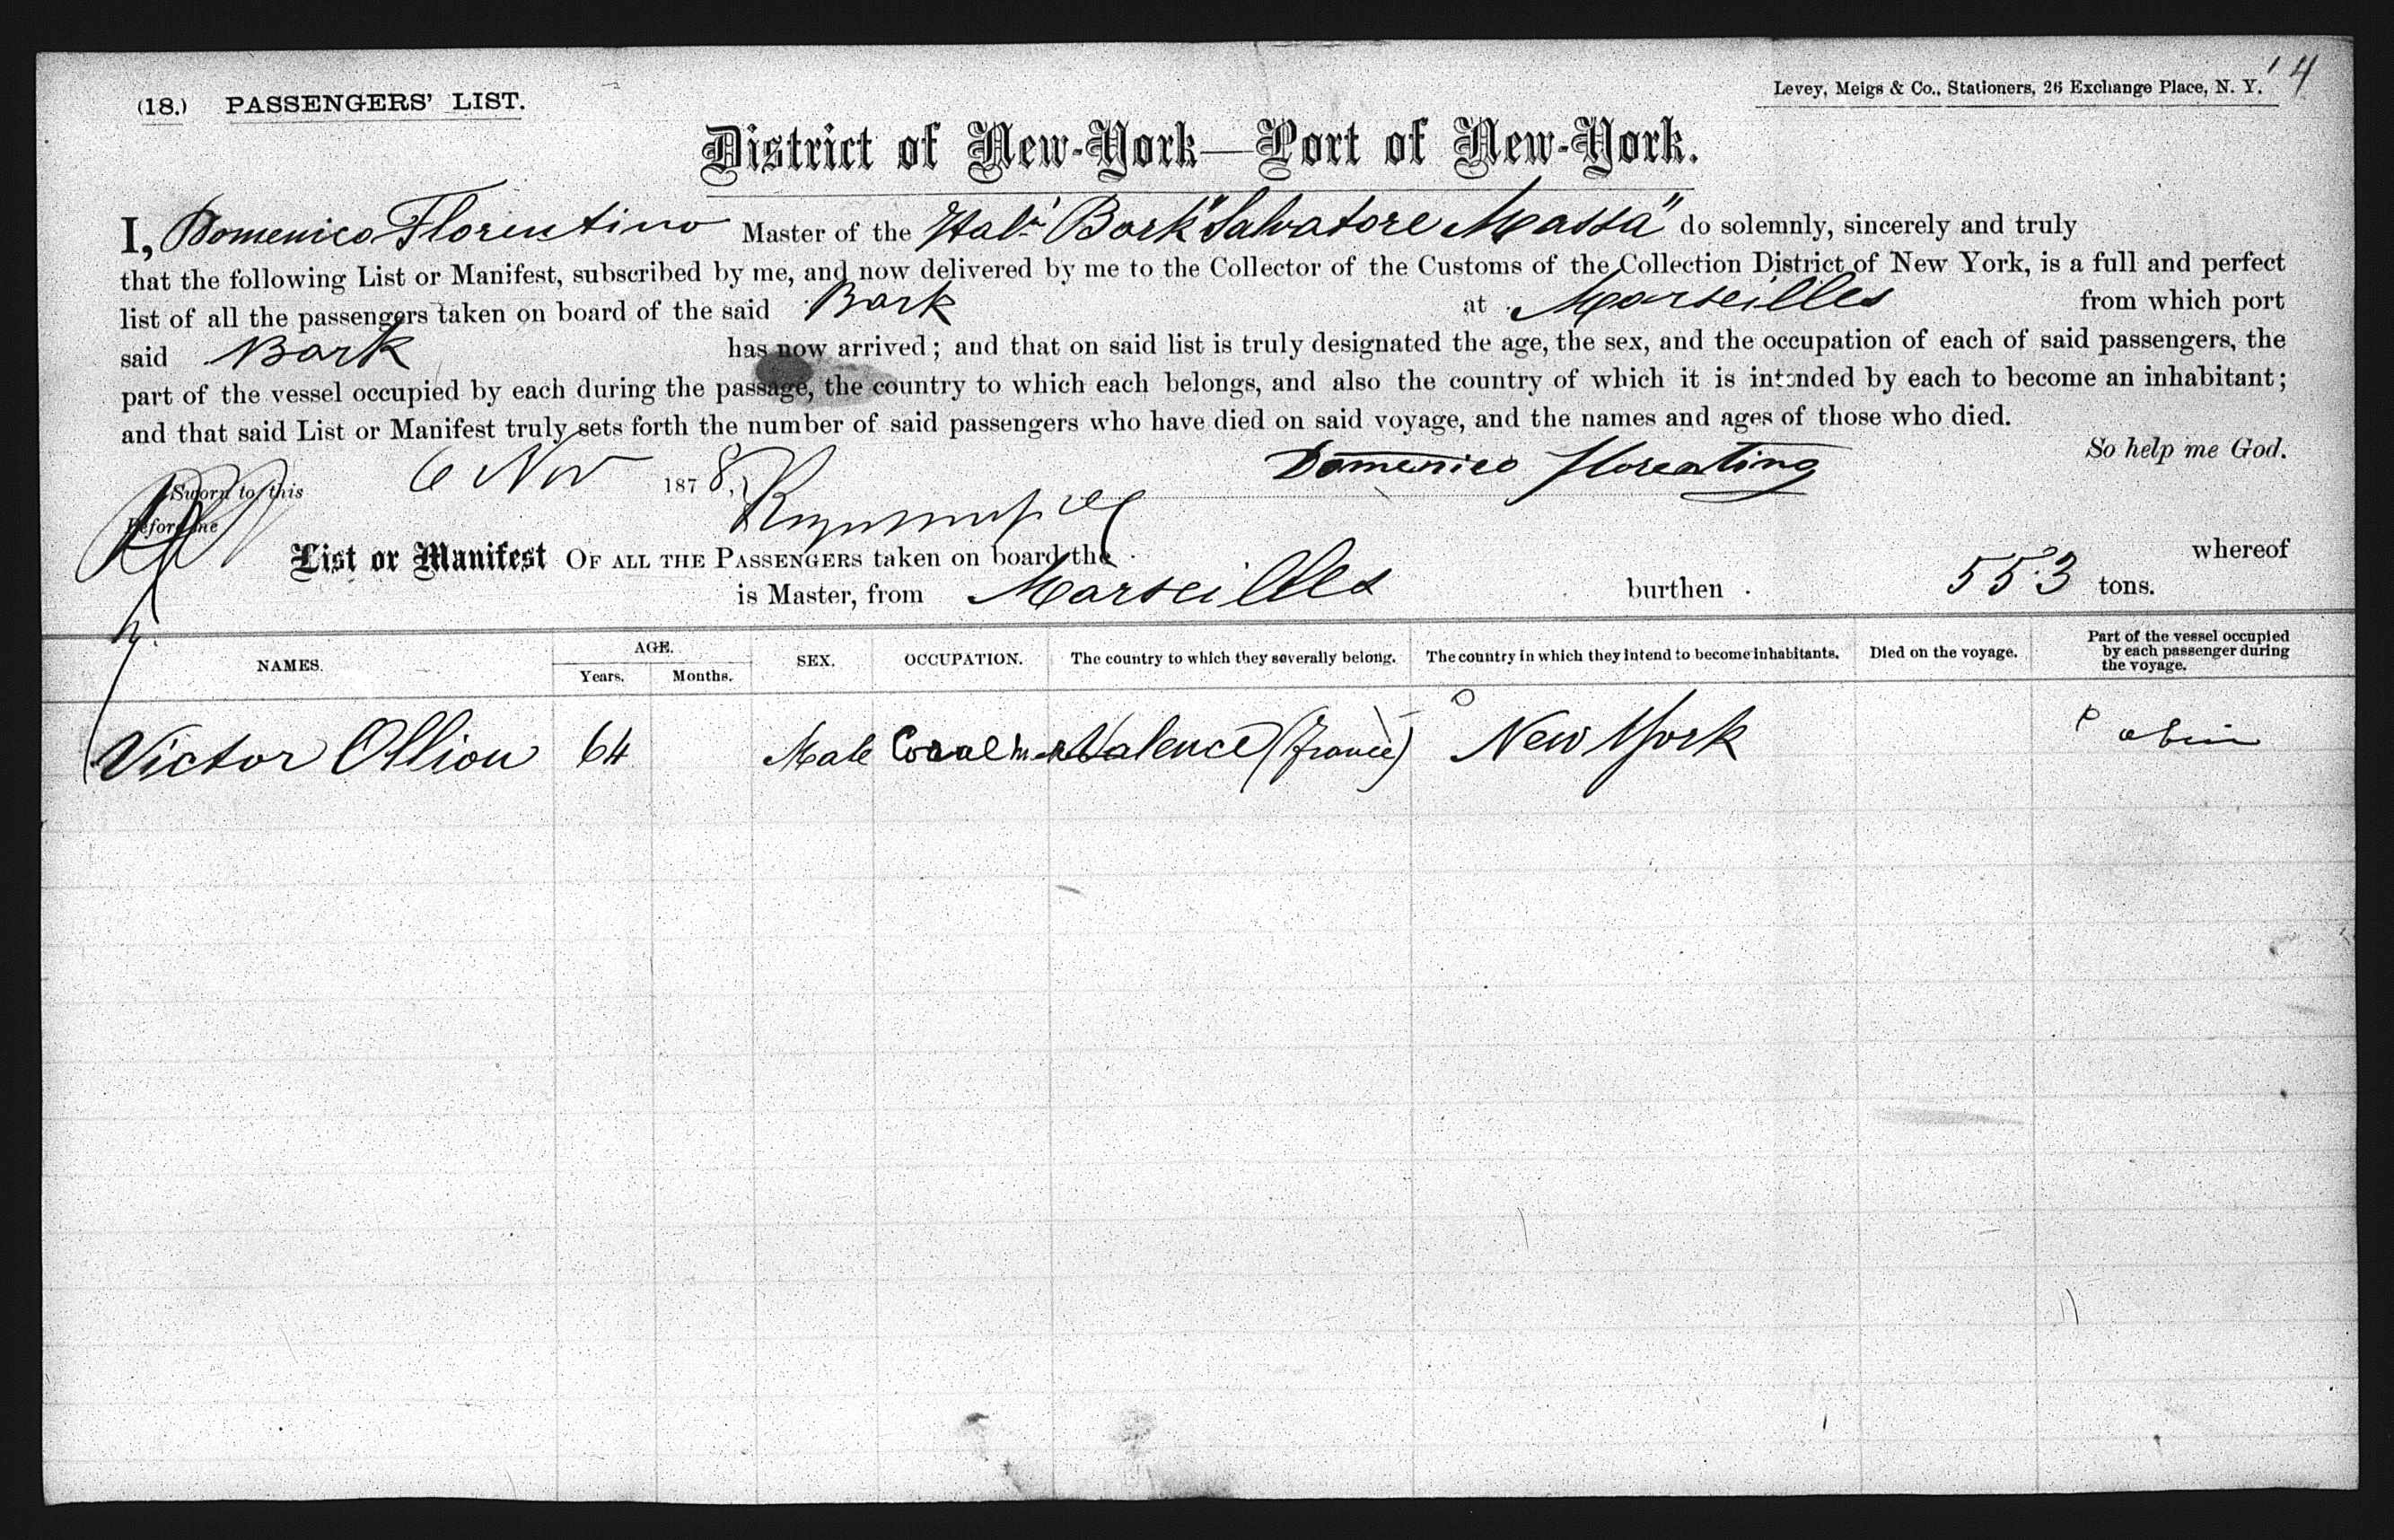 (18.) PASSENGERS' LIST.
Levey, Meigs & Co., Stationers, 26 Exchange Place, N. Y.
4
District of New-York—Port of New-York.
I, Domenico Florentino Master of the Ital. Bark "Salvatore Massa" do solemnly, sincerely and truly
that the following List or Manifest, subscribed by me, and now delivered by me to the Collector of the Customs of the Collection District of New York, is a full and perfect
list of all the passengers taken on board of the said Bark at Marseilles from which port
said Bark has now arrived; and that on said list is truly designated the age, the sex, and the occupation of each of said passengers, the
part of the vessel occupied by each during the passage, the country to which each belongs, and also the country of which it is intended by each to become an inhabitant;
and that said List or Manifest truly sets forth the number of said passengers who have died on said voyage, and the names and ages of those who died.
So help me God.
Sworn to this 6 Nov 1878, Domenico Florentino
Before me
List or Manifest OF ALL THE PASSENGERS taken on board the whereof
is Master, from Marseilles burthen 553 tons.
NAMES. AGE. Years. Months. SEX. OCCUPATION. The country to which they severally belong. The country in which they intend to become inhabitants. Died on the voyage. Part of the vessel occupied by each passenger during the voyage.
Victor Ollion 64 Male Valence (France) New York Cabin